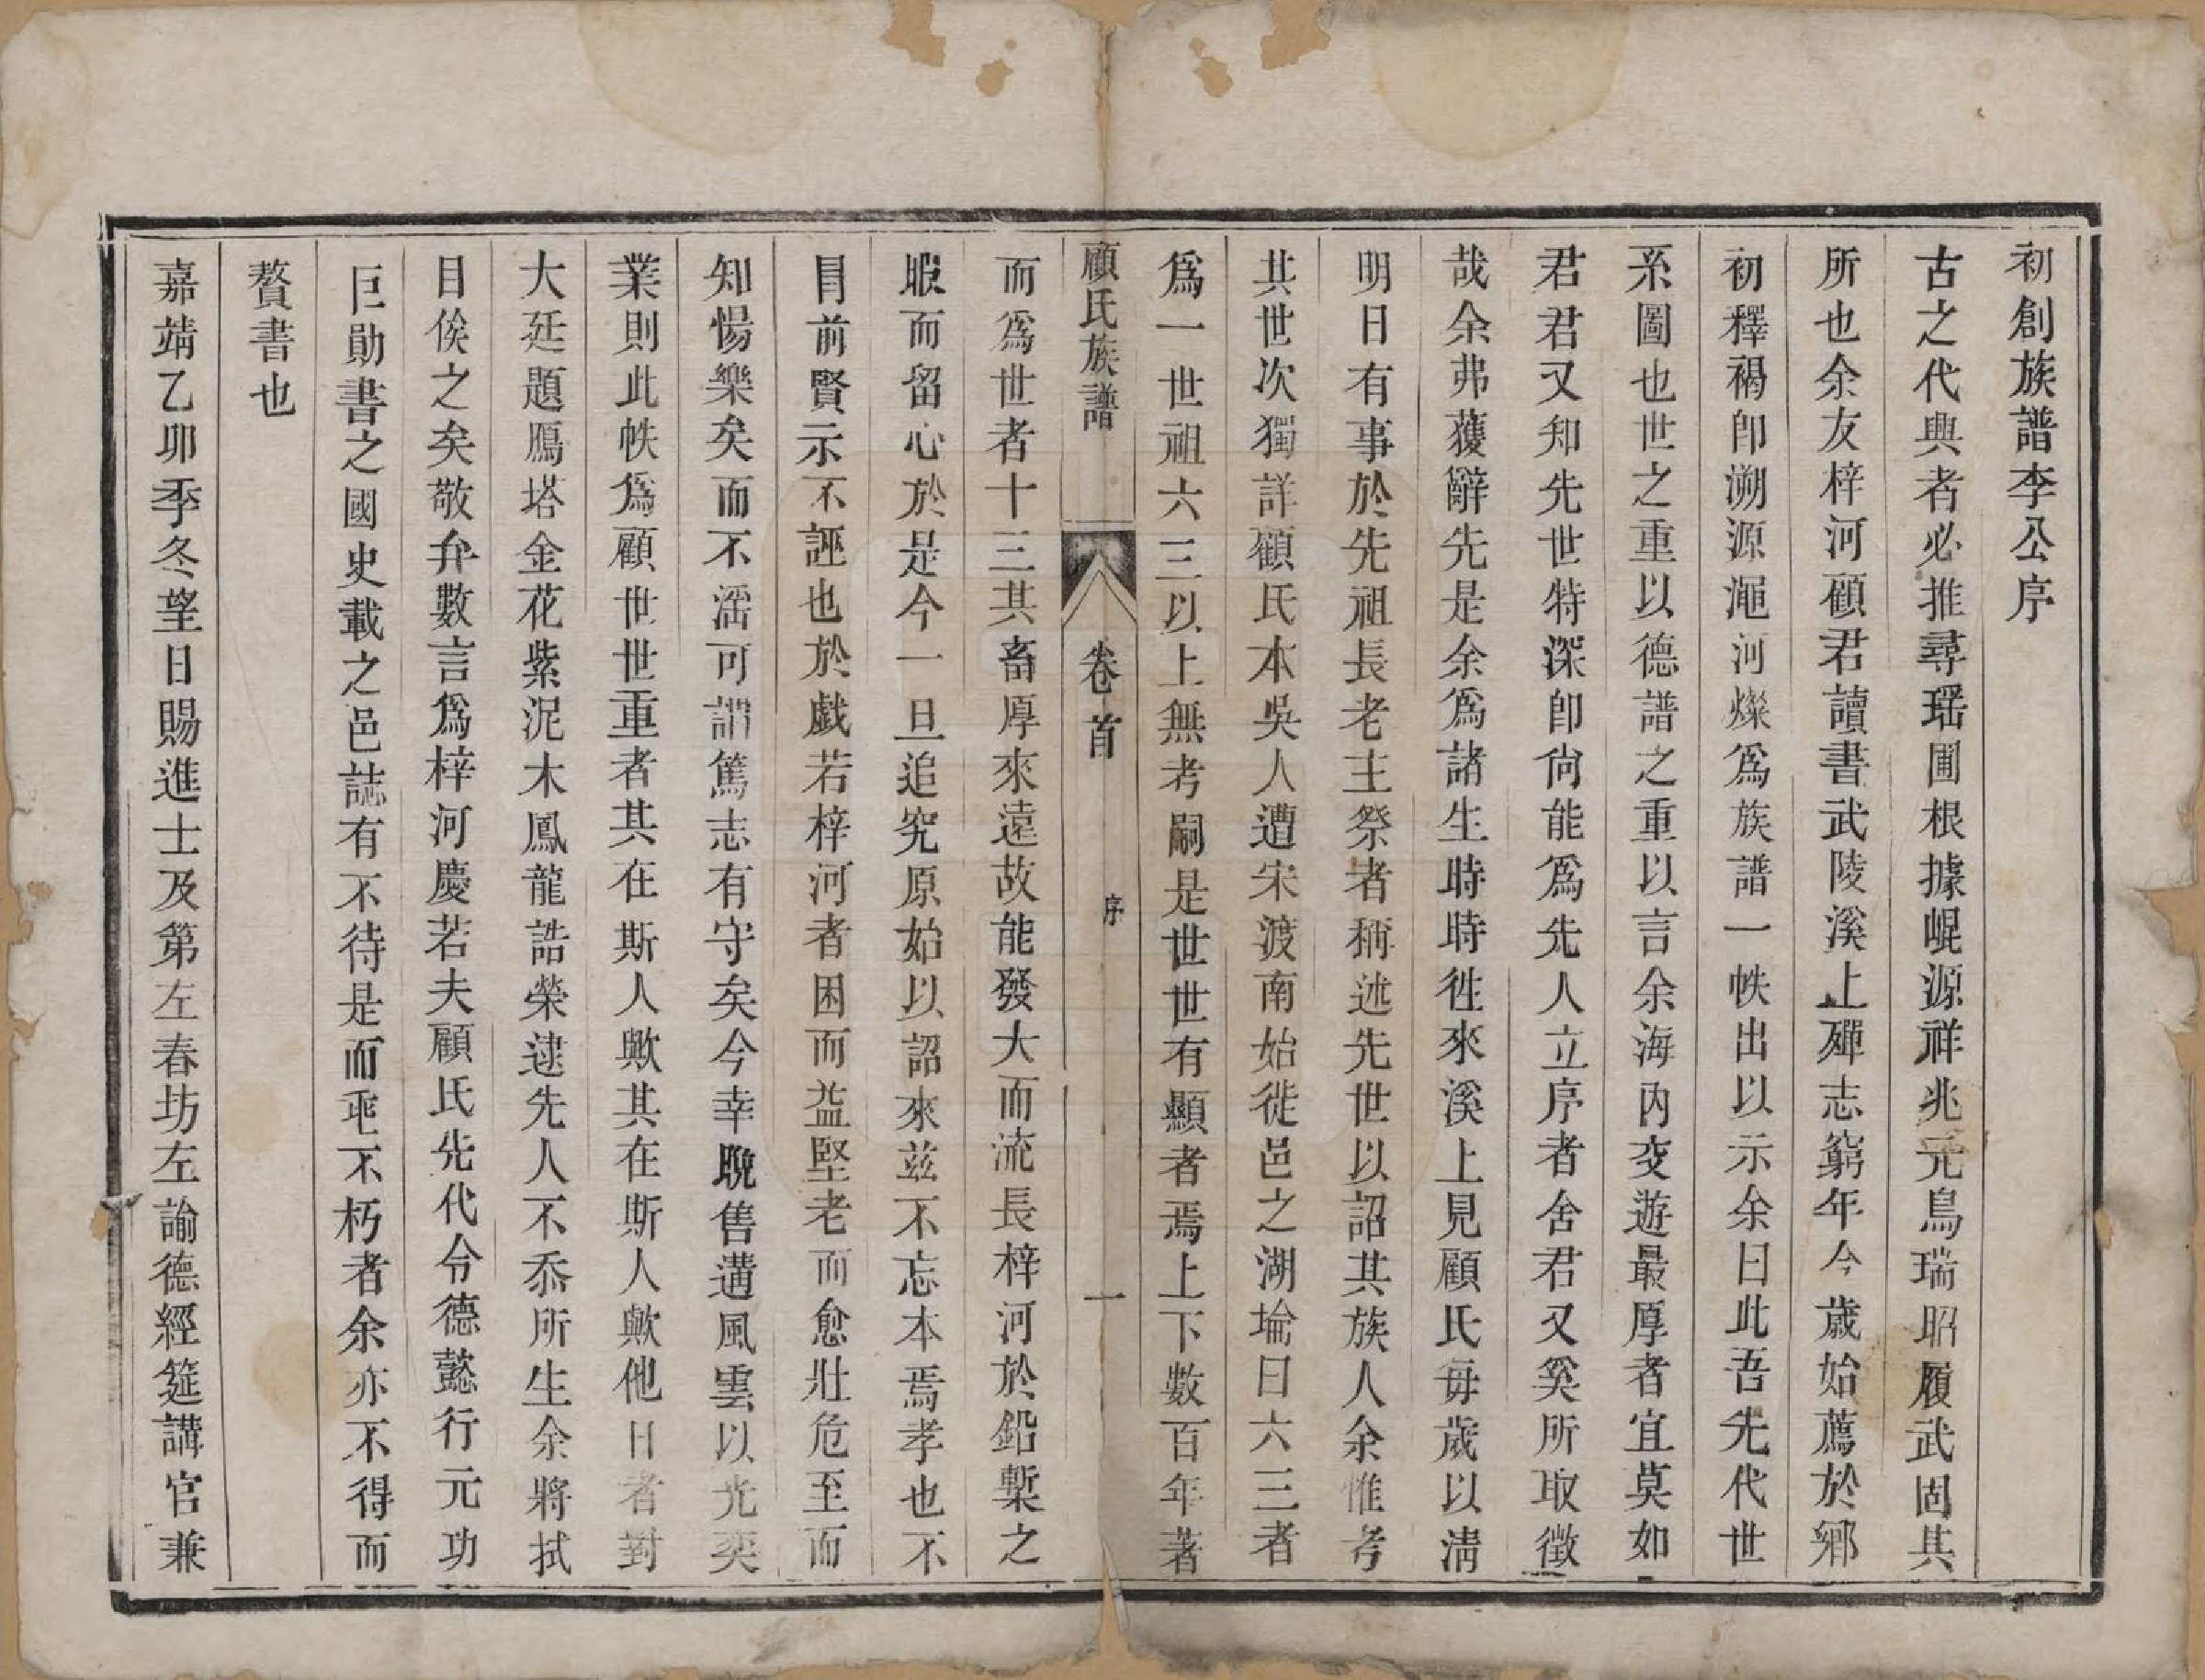 初創族譜李公序
古之代興者必推尋瑶圃根據崐源祥兆元鳥瑞昭履武固其
所也余友梓河顧君讀書武陵溪上殫志窮年今歲始薦於鄉
初釋褐卽溯源渑河燦爲族譜一帙出以示余曰此吾先代世
系圖也世之重以德譜之重以言余海內交遊最厚者宜莫如
君君又知先世特深卽尙能爲先人立序者舍君又奚所取徵
哉余弗獲辭先是余爲諸生時時徃來溪上見顧氏每歲以淸
明日有事於先祖長老主祭者稱述先世以詔其族人余惟考
其世次獨詳顧氏本吳人遭宋渡南始徙邑之湖埨曰六三者
爲一世祖六三以上無考嗣是世世有顯者焉上下數百年著
顧氏族譜 卷首 序 一
而爲世者十三其畜厚來遠故能發大而流長梓河於鉛槧之
暇而留心於是今一旦追究原始以詔來兹不忘本焉孝也不
目前賢示不誣也於戲若梓河者困而益堅老而愈壯危至而
知惕樂矣而不滛可謂篤志有守矣今幸晩售遘風雲以光奕
業則此帙爲顧世世重者其在斯人歟其在斯人歟他日者對
大廷題鴈塔金花紫泥木鳳龍誥榮逮先人不忝所生余將拭
目俟之矣敬弁數言爲梓河慶若夫顧氏先代令德懿行元功
巨勛書之國史載之邑誌有不待是而乖不朽者余亦不得而
贅書也
嘉靖乙卯季冬望日賜進士及第左春坊左諭德經筵講官兼